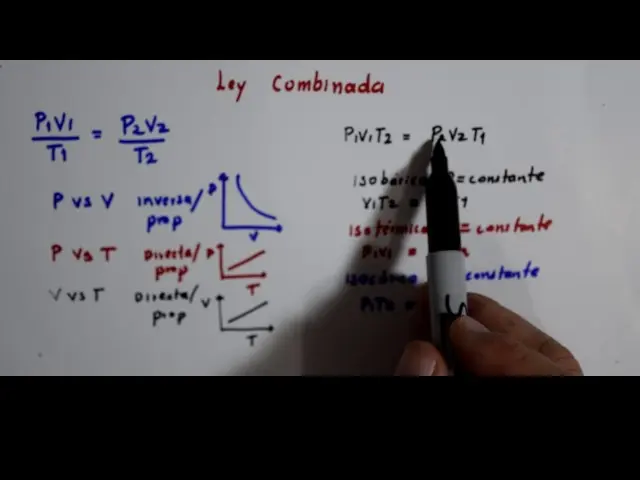 Ley Combinada
P1V1 = P2V2
T1 T2
P vs V Inversa/ P
prop
V
P vs T Directa/ P
prop
T
V vs T Directa/ V
prop
T
P1V1T2 = P2V2T1
isobárica = constante
V1T2 =
isotérmica = constante
P1V1 =
constante
P1T2 =